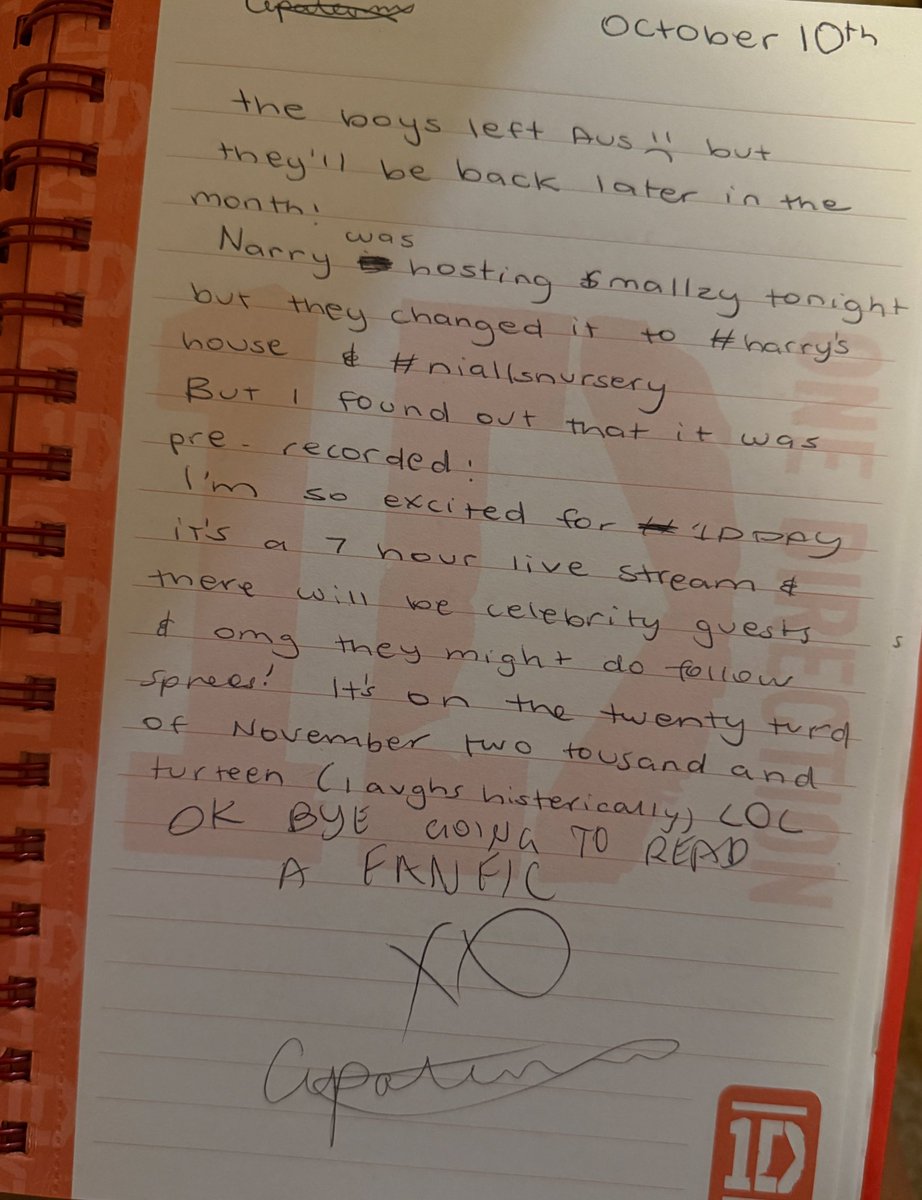 October 10th
the boys left Aus :( but
they'll be back later in the
month!
was
Narry hosting Smallzy tonight
but they changed it to #harry's
house & #niallsnursery
But I found out that it was
pre-recorded!
I'm so excited for #1DDAY
it's a 7 hour live stream &
there will be celebrity guests
& omg they might do follow
sprees! It's on the twenty turd
of November two tousand and
turteen (laughs histerically) LOL
OK BYE GOING TO READ
A FANFIC
XO
1D
ONE DIRECTION
1D